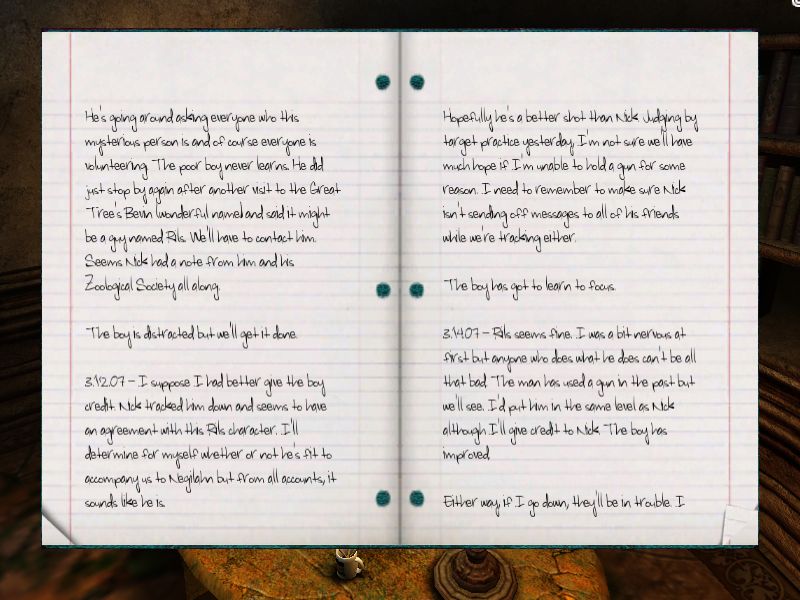 He's going around asking everyone who this
mysterious person is and of course everyone is
volunteering. The poor boy never learns. He did
just stop by again after another visit to the Great
Tree's Bevin (wonderful name) and said it might
be a guy named Rils. We'll have to contact him.
Seems Nick had a note from him and his
Zoological Society all along.
The boy is distracted but we'll get it done.
3.12.07 - I suppose I had better give the boy
credit. Nick tracked him down and seems to have
an agreement with this Rils character. I'll
determine for myself whether or not he's fit to
accompany us to Negilahn but from all accounts, it
sounds like he is.
Hopefully he's a better shot than Nick. Judging by
target practice yesterday, I'm not sure we'll have
much hope if I'm unable to hold a gun for some
reason. I need to remember to make sure Nick
isn't sending off messages to all of his friends
while we're tracking either.
The boy has got to learn to focus.
3.14.07 - Rils seems fine. I was a bit nervous at
first but anyone who does what he does can't be all
that bad. The man has used a gun in the past but
we'll see. I'd put him in the same level as Nick
although I'll give credit to Nick. The boy has
improved.
Either way, if I go down, they'll be in trouble. I